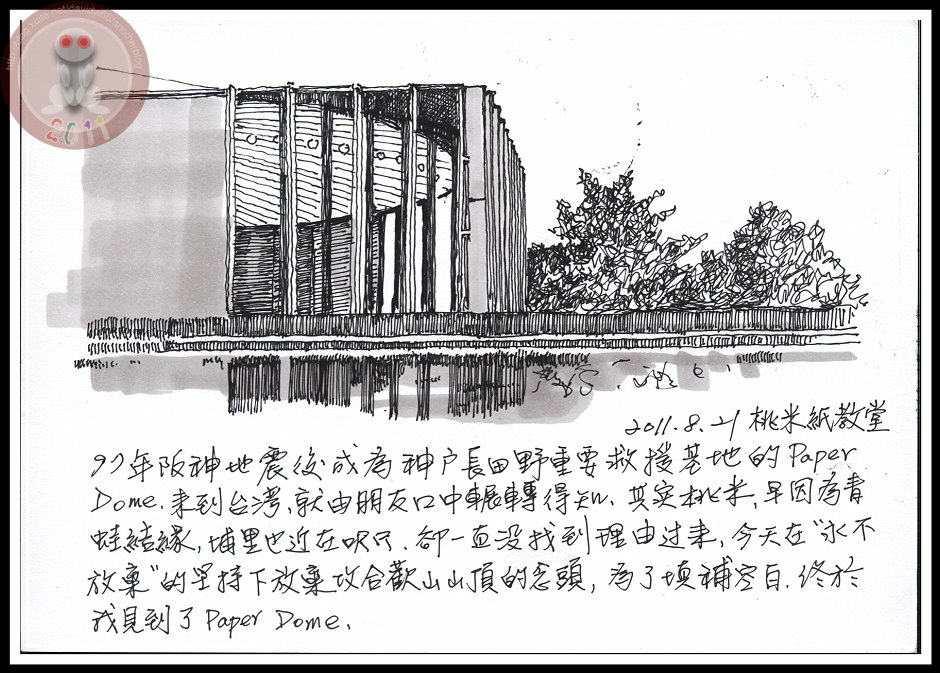 2011
2011.8.21 桃米紙教堂
97年阪神地震後成為神戶長田野重要救援基地的Paper
Dome.来到台湾,就由朋友口中輾轉得知.其实桃米,早因為青
蛙結緣,埔里也近在呎尺.卻一直没找到理由过来,今天在"永不
放棄"的坚持下放棄攻合歡山山頂的念頭,為了填補空白.終於
我見到了Paper Dome.